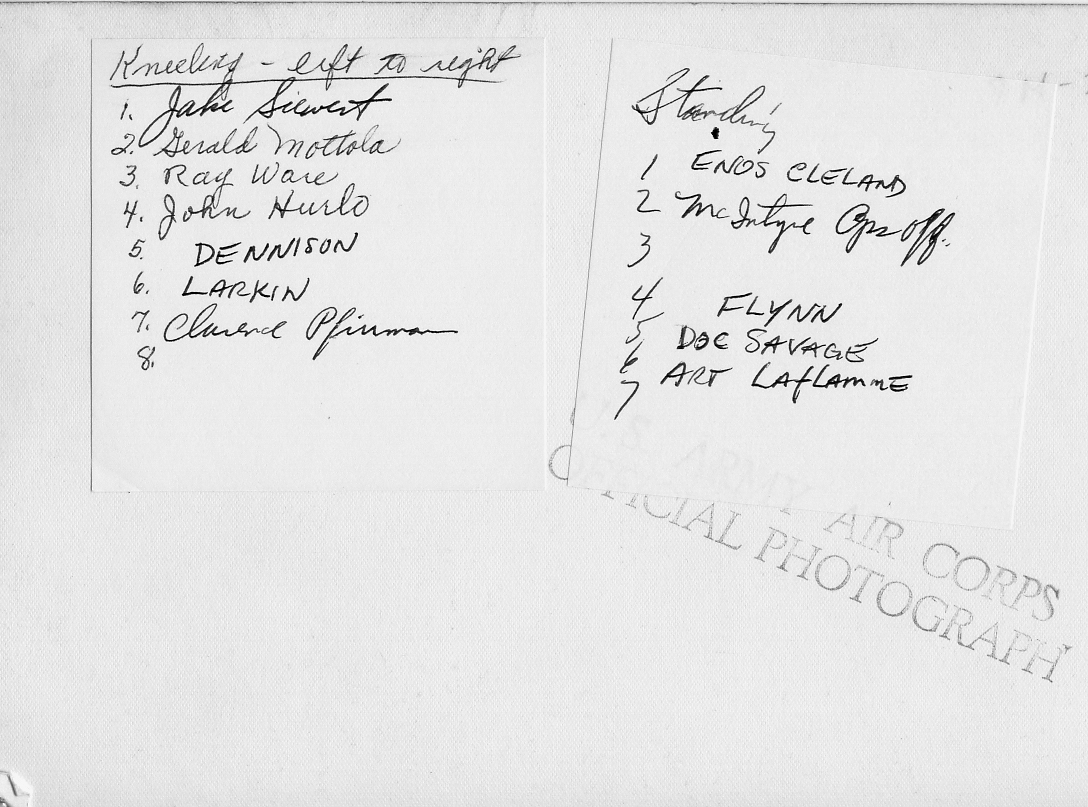 Kneeling - left to right
1. Jake Siewert
2. Gerald Mottola
3. Ray Ware
4. John Hurlo
5. DENNISON
6. LARKIN
7. Clarence
8.
Standing
1 ENOS CLELAND
2 McIntyre Ops off.
3
4 FLYNN
5 DOC SAVAGE
6 ART LAFLAMME
7
U.S ARMY AIR CORPS
OFFICIAL PHOTOGRAPH